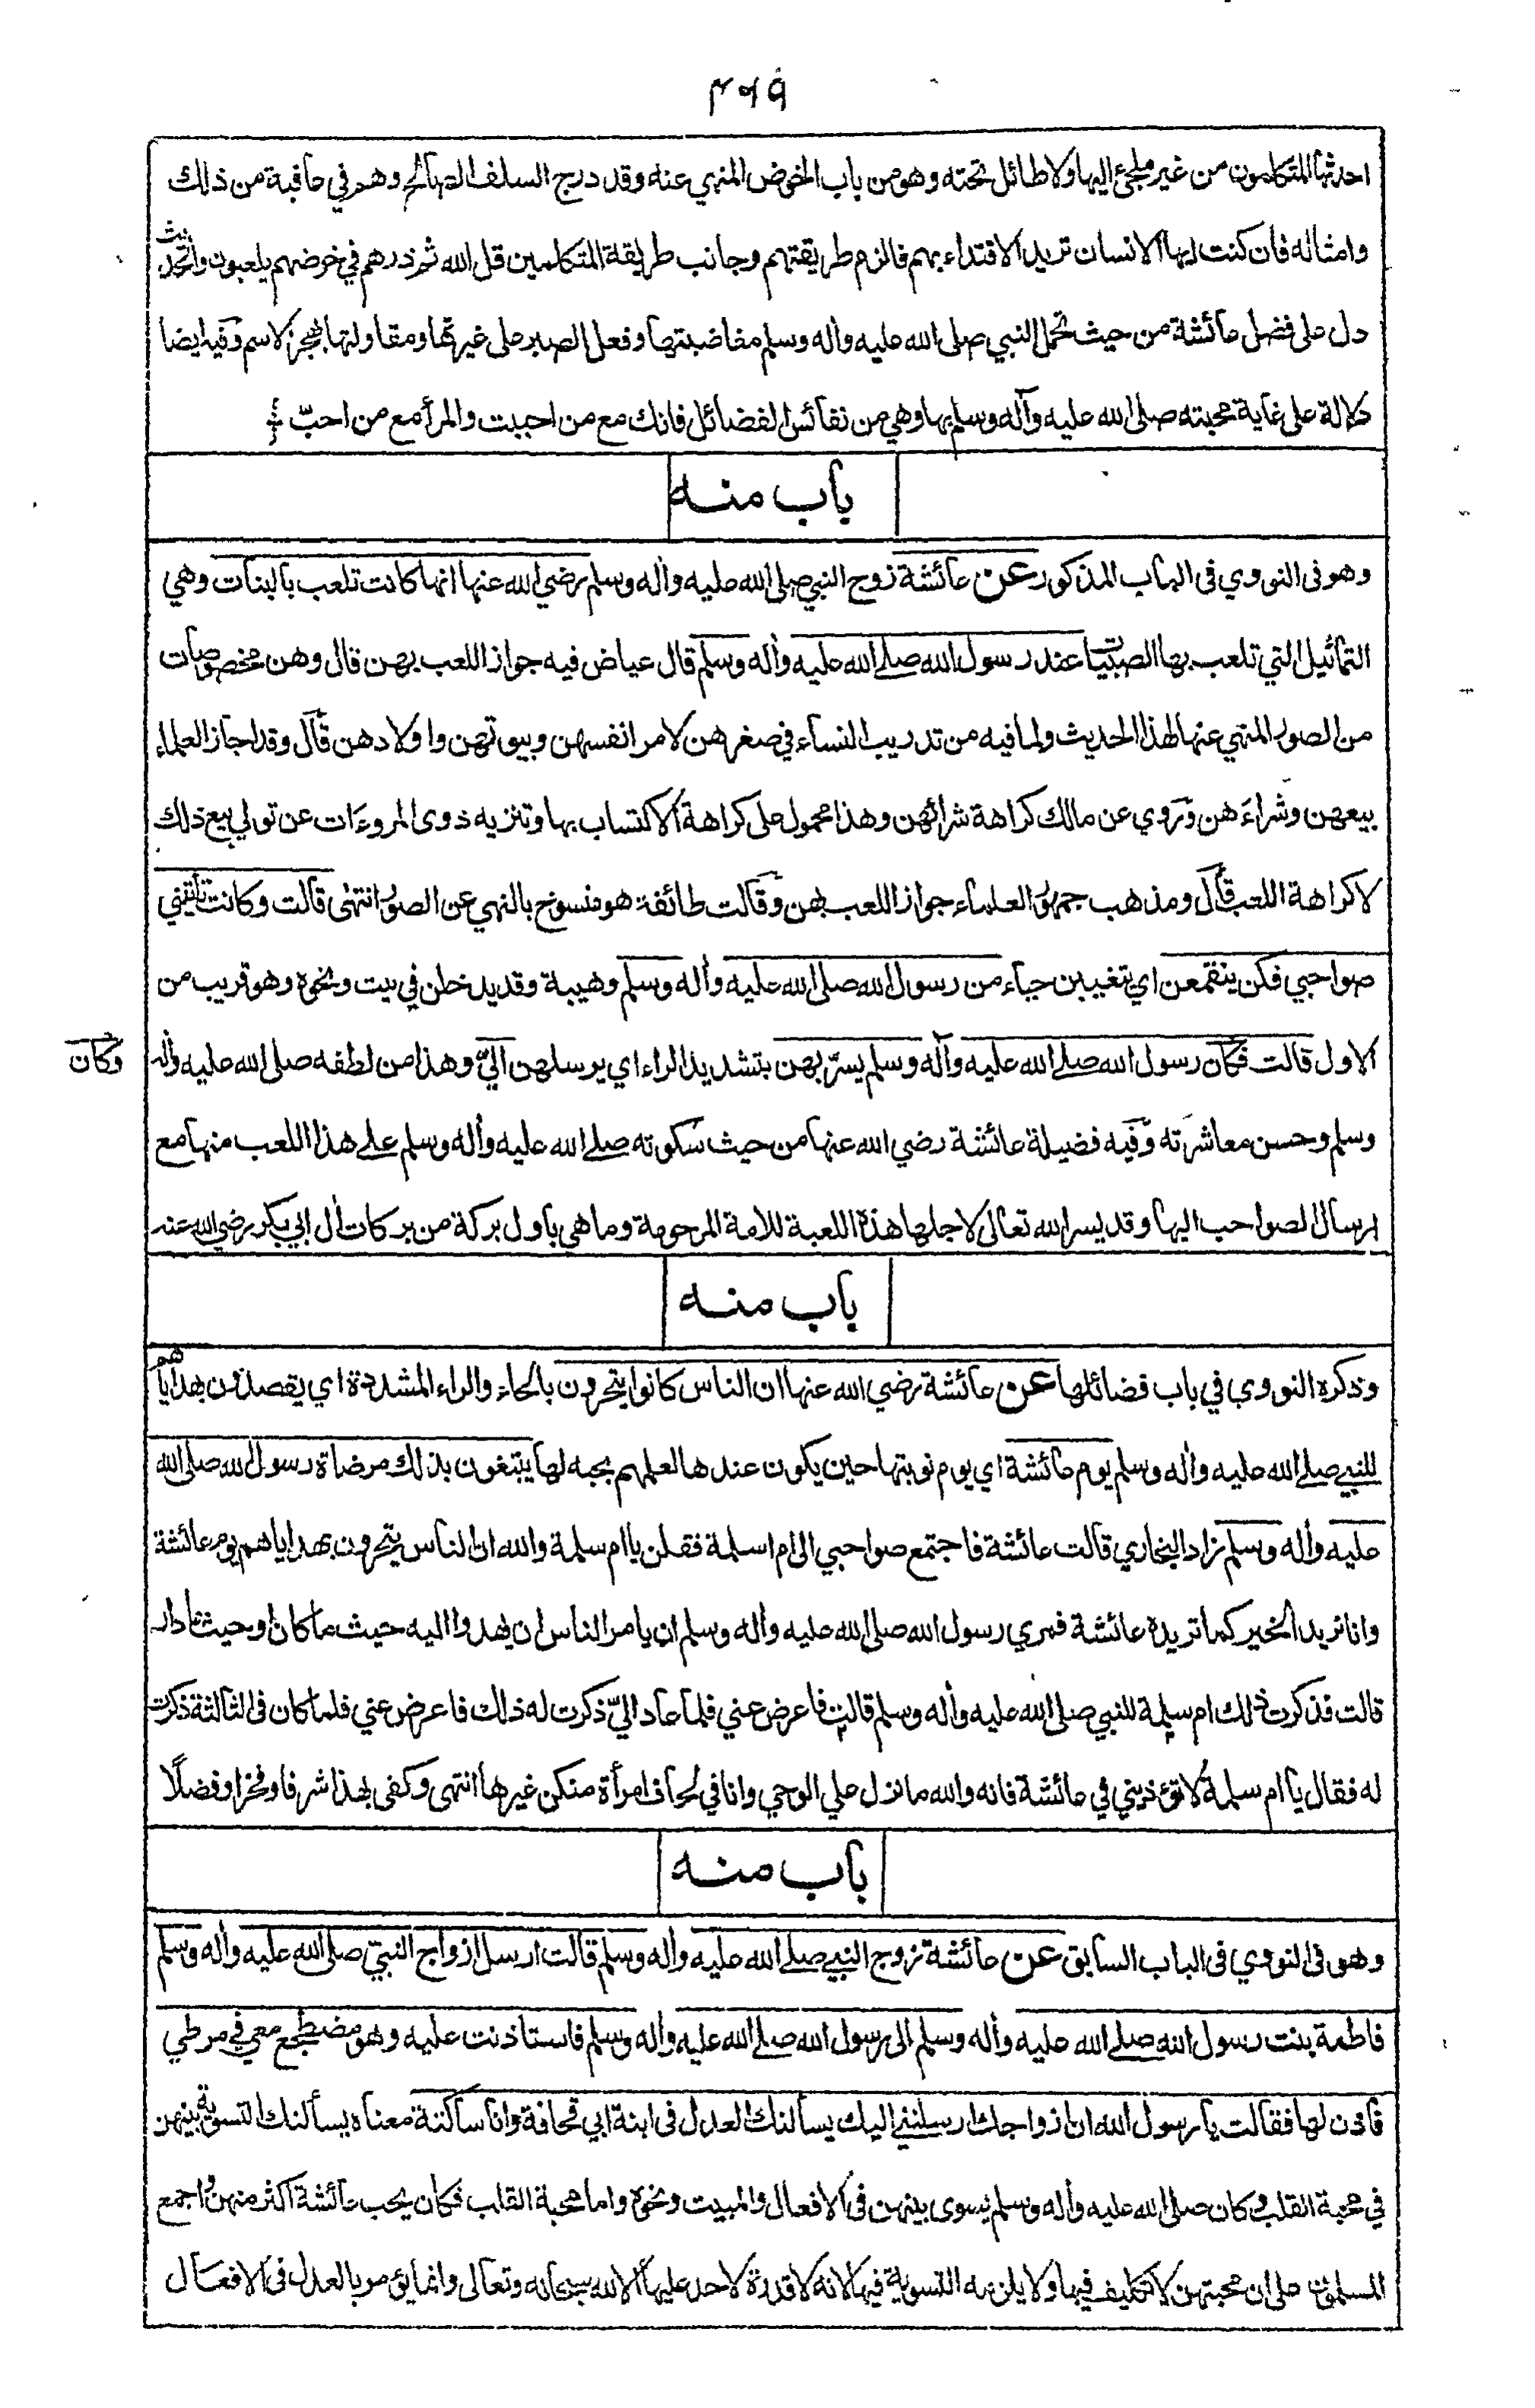 ٤٦٩
احدثها المتكلمون من غير ملجئ اليها ولا طائل تحته وهو من باب الخوض المنهي عنه وقد درج السلف الصالح وهم في عافية من ذلك
وامثاله فان كنت ايها الانسان تريد الاقتداء بهم فالزم طريقتهم وجانب طريقة المتكلمين قل الله ثم ذرهم في خوضهم يلعبون والحديث
دل على فضل عائشة من حيث تحمل النبي صلى الله عليه وأله وسلم مغاضبتها وفعل الصبر على غيرتها ومقاولتها بهجر الاسم وفيه ايضا
دلالة على غاية محبته صلى الله عليه وأله وسلم بها وهي من نفائس الفضائل فانك مع من احببت والمرأ مع من احبّ
باب منه
وهو فى النووي فى الباب المذكور عن عائشة زوج النبي صلى الله عليه وأله وسلم رضي الله عنها انها كانت تلعب بالبنات وهي
التماثيل التي تلعب بها الصبيات عند رسول الله صلى الله عليه وأله وسلم قال عياض فيه جواز اللعب بهن قال وهن مخصوصات
من الصور المنهي عنها لهذا الحديث ولما فيه من تدريب النساء في صغرهن لامر انفسهن وبيوتهن واولادهن قال وقد اجاز العلماء
بيعهن وشراءهن وروي عن مالك كراهة شرائهن وهذا محمول على كراهة الاكتساب بها وتنزيه ذوى المروءات عن تولي بيع ذلك
لا كراهة اللعب قال ومذهب جمهور العلماء جواز اللعب بهن وقالت طائفة هو منسوخ بالنهي عن الصور انتهى قالت وكانت تأتيني
صواحبي فكن ينقمعن اي يتغيبن حياء من رسول الله صلى الله عليه وأله وسلم وهيبة وقد يدخلن في بيت ونحوه وهو قريب من
الاول قالت فكان رسول الله صلى الله عليه وأله وسلم يسرّبهن بتشديد الراء اي يرسلهن اليّ وهذا من لطفه صلى الله عليه وأله
وكان
وسلم وحسن معاشرته وفيه فضيلة عائشة رضي الله عنها من حيث سكوته صلى الله عليه وأله وسلم على هذا اللعب منها مع
ارسال الصواحب اليها وقد يسر الله تعالى لاجلها هذه اللعبة للامة المرحومة وما هي باول بركة من بركات أل ابي بكر رضي الله عنه
باب منه
وذكره النووي في باب فضائلها عن عائشة رضي الله عنها ان الناس كانوا يتحرون بالحاء والراء المشددة اي يقصدون بهداياهم
للنبي صلى الله عليه وأله وسلم يوم عائشة اي يوم نوبتها حين يكون عندها لعلمهم بحبه لها يبتغون بذلك مرضاة رسول الله صلى الله
عليه وأله وسلم زاد البخاري قالت عائشة فاجتمع صواحبي الى ام سلمة فقلن يا ام سلمة والله ان الناس يتحرون بهداياهم يوم عائشة
وانا نريد الخير كما تريده عائشة فمري رسول الله صلى الله عليه وأله وسلم ان يامر الناس ان يهدوا اليه حيث ما كان او حيث ما دار
قالت فذكرت ذلك ام سلمة للنبي صلى الله عليه وأله وسلم قالت فاعرض عني فلما عاد اليّ ذكرت له ذلك فاعرض عني فلما كان فى الثالثة ذكرت
له فقال يا ام سلمة لا تؤذيني في عائشة فانه والله ما نزل علي الوحي وانا في لحاف امرأة منكن غيرها انتهى وكفى بهذا شرفا وفخرا وفضلًا
باب منه
وهو فى النووي فى الباب السابق عن عائشة زوج النبي صلى الله عليه وأله وسلم قالت ارسل ازواج النبي صلى الله عليه وأله وسلم
فاطمة بنت رسول الله صلى الله عليه وأله وسلم الى رسول الله صلى الله عليه وأله وسلم فاستاذنت عليه وهو مضطجع معي في مرطي
فاذن لها فقالت يا رسول الله ان ازواجك ارسلنني اليك يسألنك العدل فى ابنة ابي قحافة وانا ساكتة معناه يسألنك التسوية بينهن
في محبة القلب وكان صلى الله عليه وأله وسلم يسوى بينهن فى الافعال والمبيت ونحوه واما محبة القلب فكان يحب عائشة اكثر منهن واجمع
المسلمون على ان محبتهن لا تكليف فيها ولا يلزمه التسوية فيها لانه لا قدرة لاحد عليها الا الله سبحانه وتعالى وانما يؤمر بالعدل فى الافعال